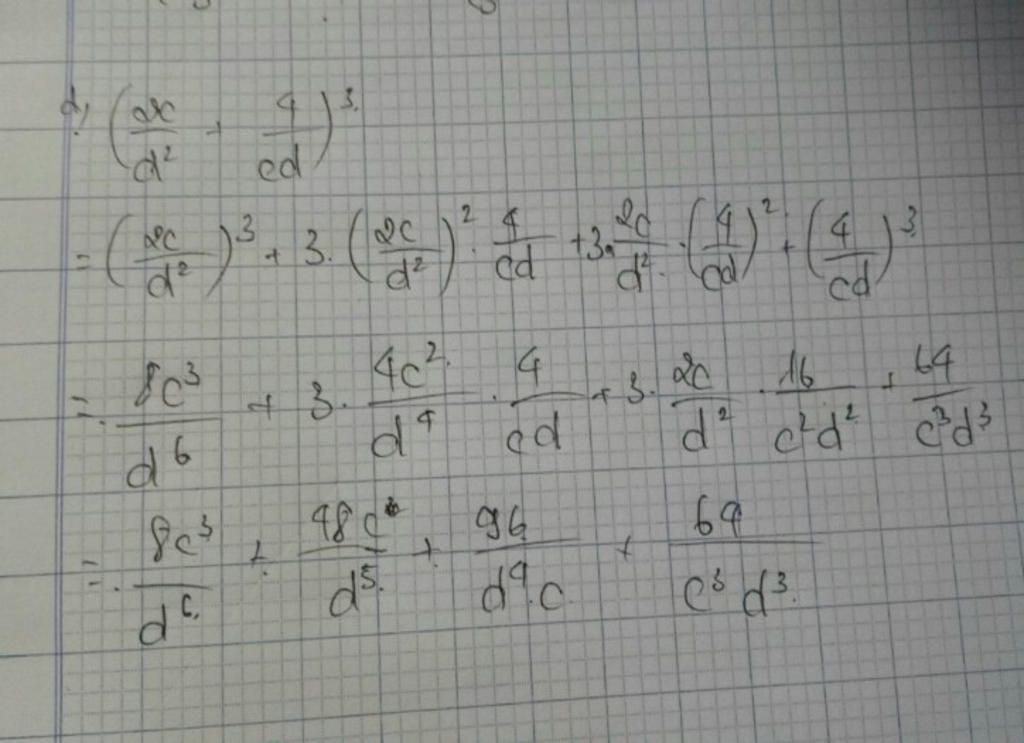 d, (2c/d² + 4/cd)³
= (2c/d²)³ + 3·(2c/d²)²·4/cd + 3·2c/d²·(4/cd)² + (4/cd)³
= 8c³/d⁶ + 3·4c²/d⁴·4/cd + 3·2c/d²·16/c²d² + 64/c³d³
= 8c³/d⁶ + 48c/d⁵ + 96/d⁴·c + 64/c³d³